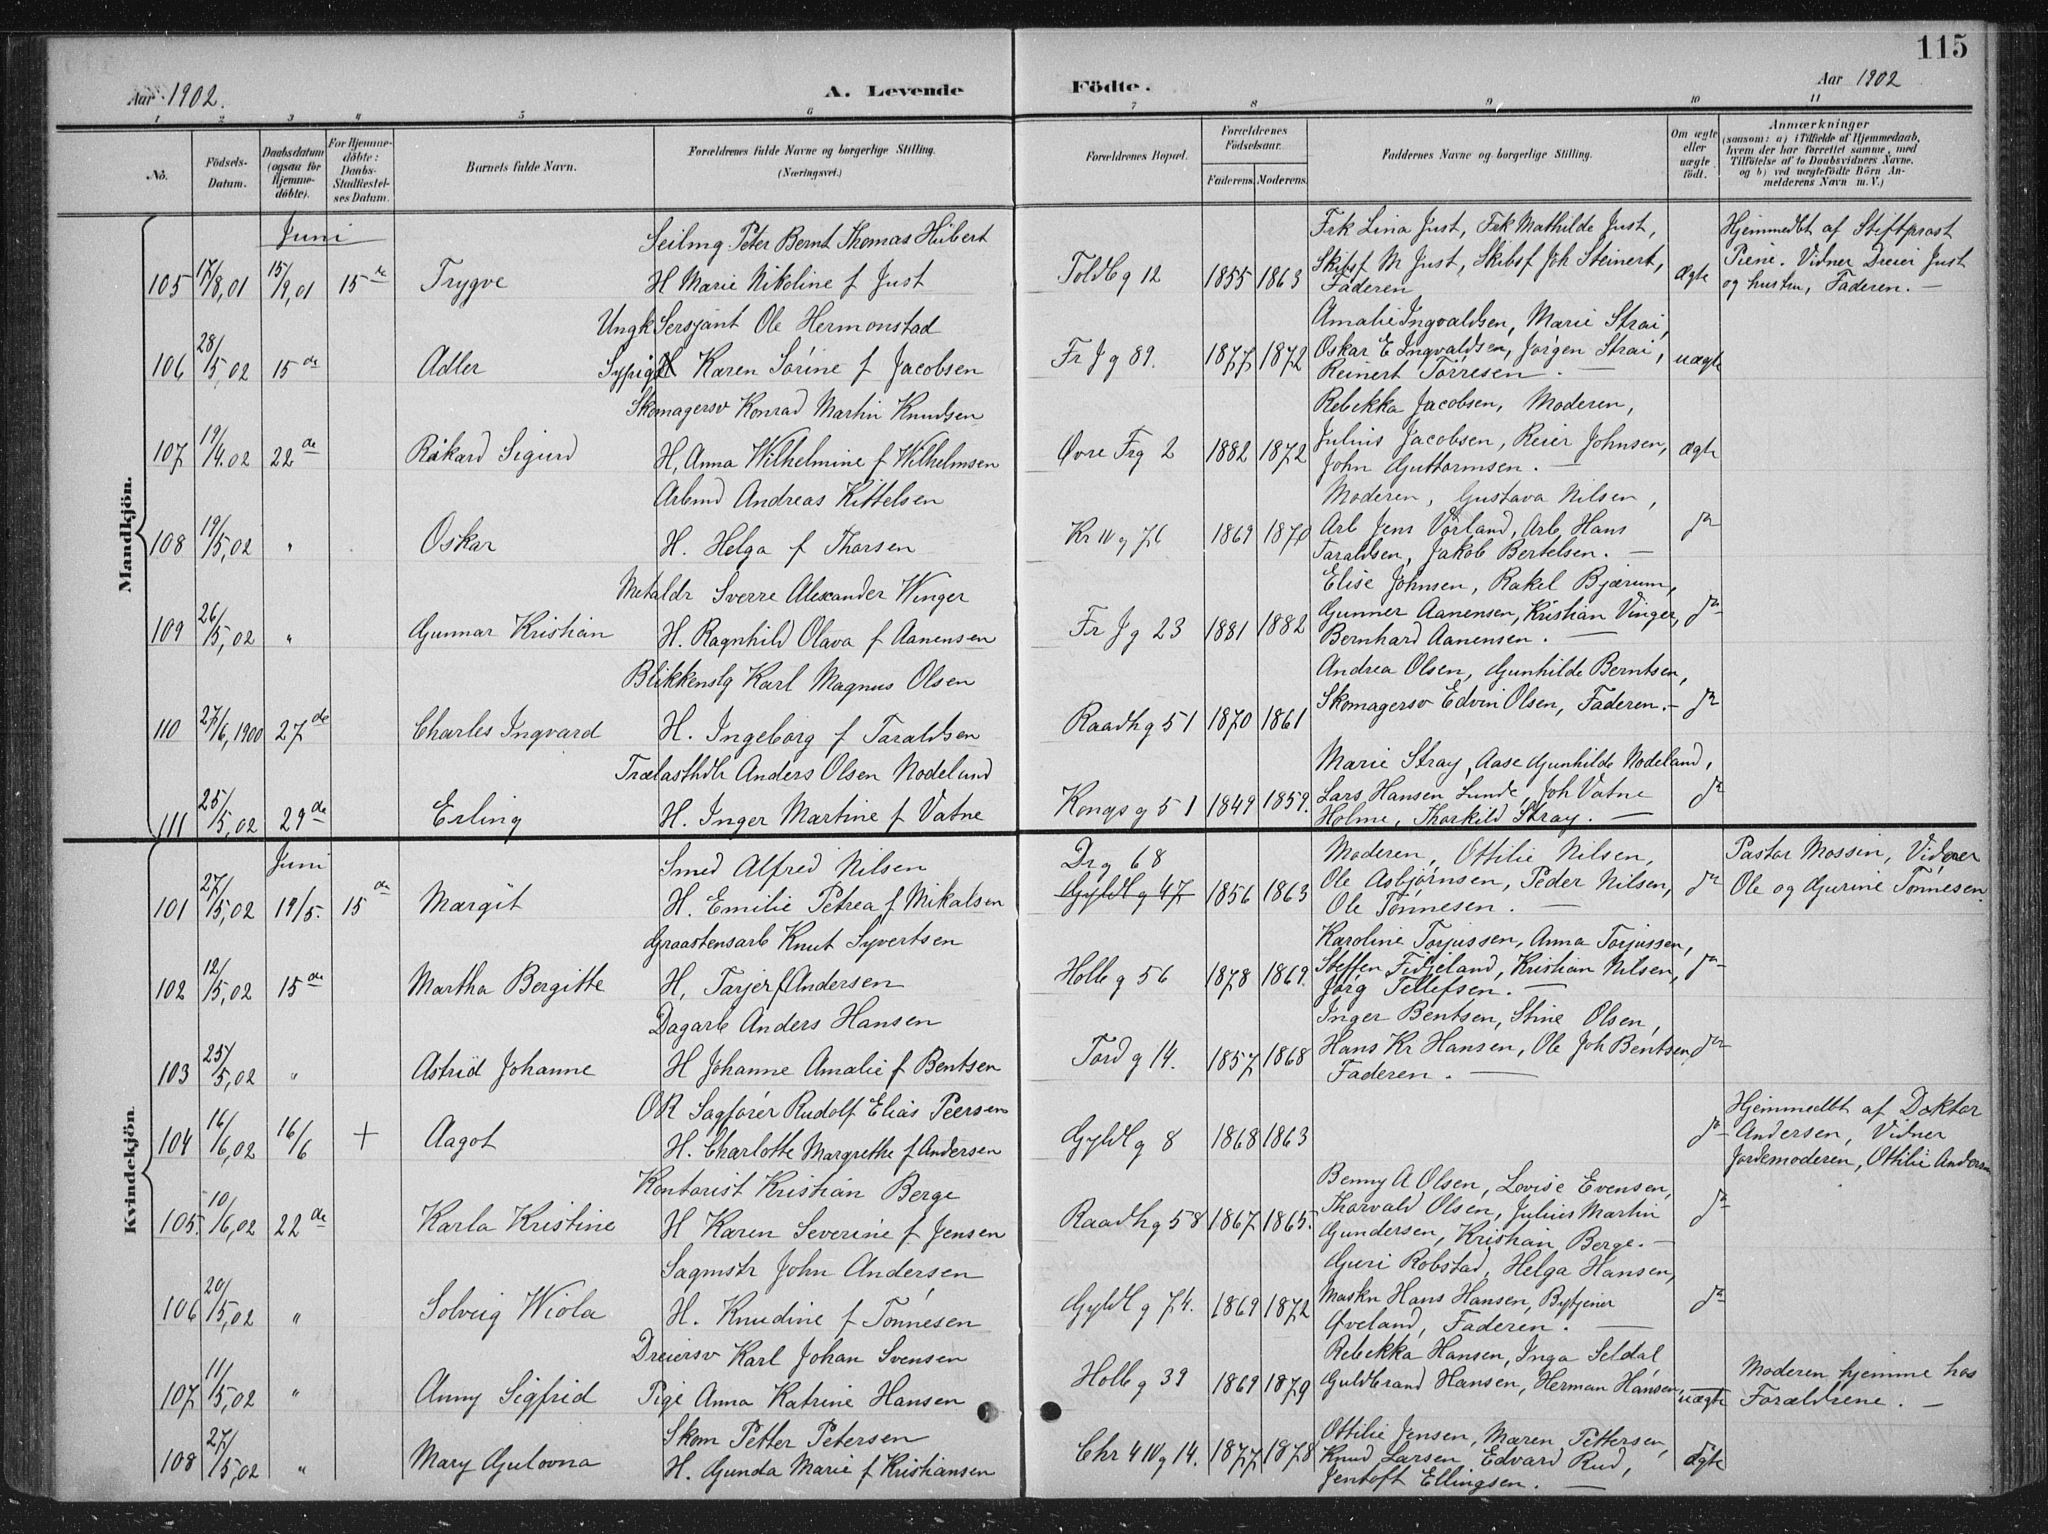 115
Aar 1902.
A. Levende
Födte.
Aar 1902
1 2 3 4 5 6 7 8 9 10 11
No.
Födsels-Datum.
Daabsdatum (ogsaa for Hjemmedöbte).
For Hjemmedöbte: Daabs-Stadfæstelses Datum.
Barnets fulde Navn.
Forældrenes fulde Navne og borgerlige Stilling. (Næringsvei.)
Forældrenes Bopæl.
Forældrenes Födselsaar.
Faderens. Moderens.
Faddernes Navne og borgerlige Stilling.
Om ægte eller uægte födt.
Anmærkninger
(saasom: a) i Tilfælde af Hjemmedaab, hvem der har forrettet samme, med Tilföielse af to Daabsvidners Navne. og b) ved uægtefödte Börn Anmelderens Navn m. V.)
Mandkjön.
Juni
105 17/8,01 15/9,01 15de Trygve
Seilmg. Peter Bernt Thomas Hübert
H Marie Nikoline f Just
Toldbg 12 1855 1863
Frk Lina Just, Frk Mathilde Just,
Skibsf M Just, Skibsf Joh Steinert,
Faderen
ægte
Hjemmedbt af Stiftprost
Piene. Vidner Dreier Just
og hustru, Faderen. —
106 28/5,02 15de Adler
Ungk Sersjant Ole Hermonstad
Sypige Karen Sørine f Jacobsen
Fr J g 89. 1877 1872
Amalie Ingvaldsen, Marie Strai,
Oskar E Ingvaldsen, Jørgen Strai,
Reinert Tørresen. —
uægte
107 19/4.02 22de Rikard Sigurd
Skomagersv Konrad Martin Knudsen
H, Anna Wilhelmine f Wilhelmsen
Øvre Frg 2 1882 1872
Rebekka Jacobsen, Moderen,
Julius Jacobsen, Reier Johnsen,
John Guttormsen. —
ægte
108 19/5,02 " Oskar
Arbmd Andreas Kittelsen
H. Helga f Thorsen
Kr IV g 76 1869 1870
Moderen, Gustava Nilsen,
Arb Jens Vørland, Arb Hans
Taraldsen, Jakob Bertelsen. —
do
109 26/5,02 " Gunnar Kristian
Metaldr Sverre Alexander Winger
H. Ragnhild Olava f Aanensen
Fr J g 23 1881 1882
Elise Johnsen, Rakel Bjærum,
Gunner Aanensen, Kristian Vinger,
Bernhard Aanensen. —
do
110 27/6,1900 27de Charles Ingvard
Blikkenslg Karl Magnus Olsen
H. Ingeborg f Taraldsen
Raadhg 51 1870 1861
Andrea Olsen, Gunhilde Berntsen,
Skomagersv Edvin Olsen, Faderen. —
do
111 25/5,02 29de Erling
Trælasthdlr Anders Olsen Nodeland
H. Inger Martine f Vatne
Kongsg 51 1849 1859.
Marie Stray, Aase Gunhilde Nodeland,
Lars Hansen Lunde, Joh Vatne
Holme, Thorkild Stray. —
do
Kvindekjön.
Juni
101 27/5,02 19/5. 15de Margit
Smed Alfred Nilsen
H. Emilie Petrea f Mikalsen
Drg 68
Gyldlg 47 1856 1863
Moderen, Ottilie Nilsen,
Ole Asbjørnsen, Peder Nilsen,
Ole Tønnesen. —
do
Pastor Mossin, Vidner
Ole og Gurine Tønnesen.
102 12/5,02 15de Martha Bergitte
Graastensarb Knut Syvertsen
H, Tarjer f Andersen
Holbg 56 1878 1869.
Karoline Torjussen, Anna Torjussen,
Steffen Fidjeland, Kristian Nilsen,
Jørg Tellefsen. —
do
103 25/5,02 " Astrid Johanne
Dagarb Anders Hansen
H Johanne Amalie f Bentsen
Tordg 14. 1857 1868
Inger Bentsen, Stine Olsen,
Hans Kr Hansen, Ole Joh Bentsen,
Faderen. —
do
104 16/6,02 16/6 + Aagot
OR Sagfører Rudolf Elias Peersen
H. Charlotte Margrethe f Andersen
Gyldlg 8 1868 1863
do
Hjemmedbt af Doktor
Andersen, Vidner
Jordemoderen, Ottilie Andersen
105. 10/6,02 22de Karla Kristine
Kontorist Kristian Berge
H Karen Severine f Jensen
Raadhg 58 1867 1865.
Benny A Olsen, Lovise Evensen,
Thorvald Olsen, Julius Martin
Gundersen, Kristian Berge. —
do
106 20/5,02 " Solveig Wiola
Sagmstr John Andersen
H. Knudine f Tønnesen
Gyldlg 74. 1869 1872
Guri Robstad, Helga Hansen,
Maskn Hans Hansen, Bytjener
Øveland, Faderen. —
do
107 11/5,02 " Anny Sigfrid
Dreiersv Karl Johan Svensen
Pige Anna Katrine Hansen
Holbg 39 1869 1879
Rebekka Hansen, Inga Seldal
Guldbrand Hansen, Herman Hansen,
uægte
Moderen hjemme hos
Forældrene. —
108 27/5,02 " Mary Gulovna
Skom Petter Petersen
H. Gunda Marie f Kristiansen
Chr 4 IV g 14. 1877 1878
Ottilie Jensen, Maren Pettersen,
Knud Larsen, Edvard Rud,
Jentoft Ellingsen. —
ægte